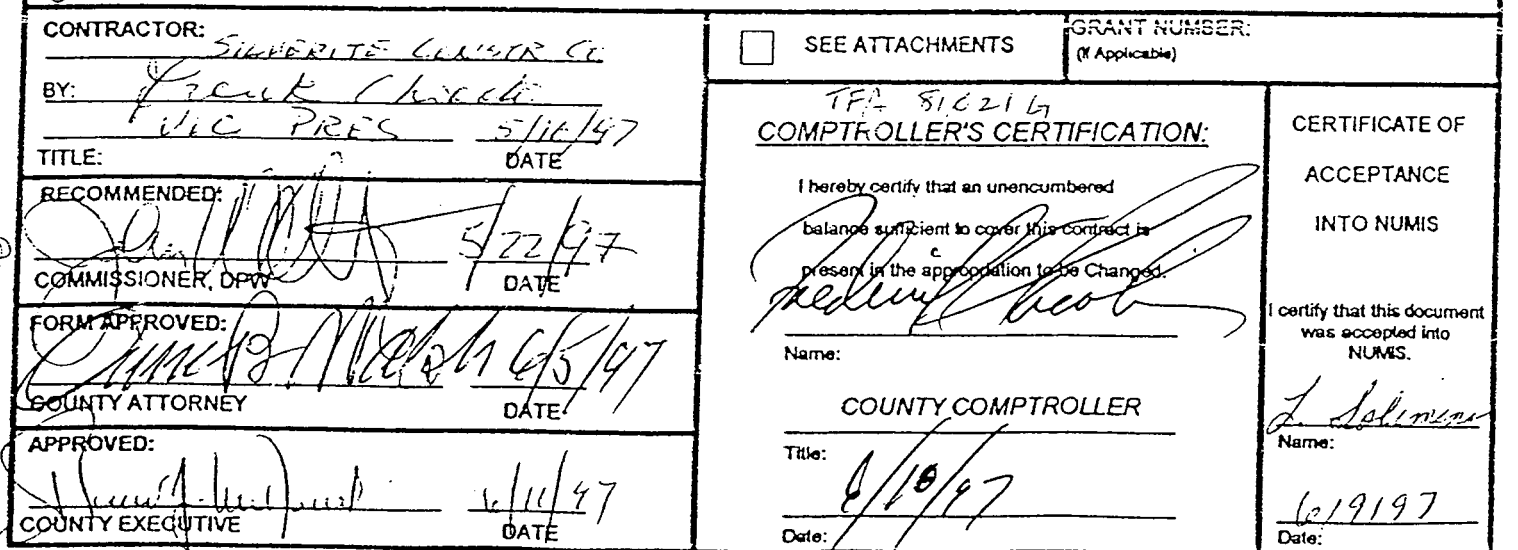 CONTRACTOR: SILVERITE CONSTR CO
BY: Frank
VIC PRES 5/16/97
TITLE: DATE
RECOMMENDED:
5/22/97
COMMISSIONER, DPW DATE
FORM APPROVED:
6/5/97
COUNTY ATTORNEY DATE
APPROVED:
6/11/97
COUNTY EXECUTIVE DATE
SEE ATTACHMENTS
GRANT NUMBER:
(If Applicable)
TFA
COMPTROLLER'S CERTIFICATION:
I hereby certify that an unencumbered
balance sufficient to cover this contract is
present in the appropriation to be Changed.
Name:
COUNTY COMPTROLLER
Title:
6/10/97
Date:
CERTIFICATE OF
ACCEPTANCE
INTO NUMIS
I certify that this document
was accepted into
NUMIS.
L.
Name:
6/9/97
Date: